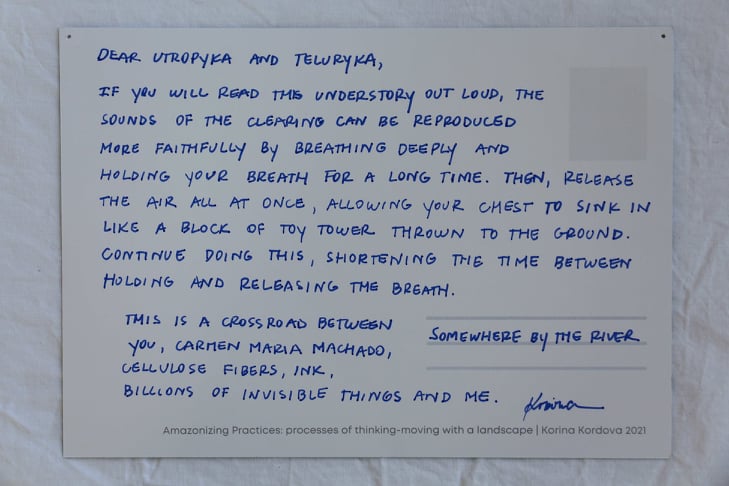 DEAR UTROPYKA AND TELURYKA,
IF YOU WILL READ THIS UNDERSTORY OUT LOUD, THE
SOUNDS OF THE CLEARING CAN BE REPRODUCED
MORE FAITHFULLY BY BREATHING DEEPLY AND
HOLDING YOUR BREATH FOR A LONG TIME. THEN, RELEASE
THE AIR ALL AT ONCE, ALLOWING YOUR CHEST TO SINK IN
LIKE A BLOCK OF TOY TOWER THROWN TO THE GROUND.
CONTINUE DOING THIS, SHORTENING THE TIME BETWEEN
HOLDING AND RELEASING THE BREATH.
THIS IS A CROSSROAD BETWEEN
YOU, CARMEN MARIA MACHADO,
CELLULOSE FIBERS, INK,
BILLIONS OF INVISIBLE THINGS AND ME.
SOMEWHERE BY THE RIVER
Korina
Amazonizing Practices: processes of thinking-moving with a landscape | Korina Kordova 2021